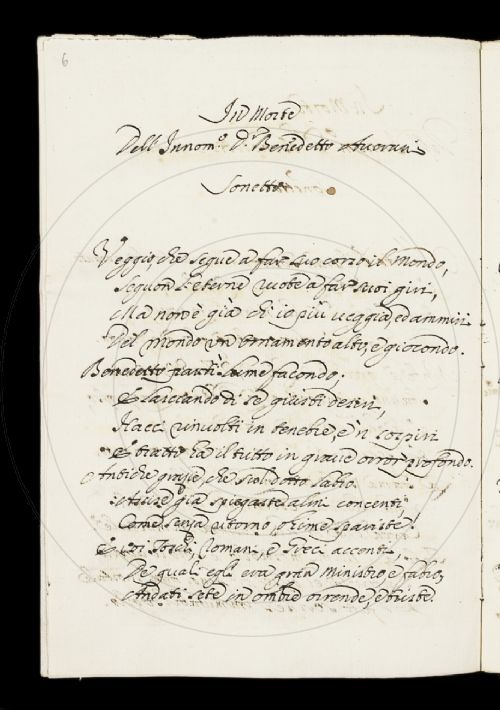 6
In Morte
Dell'Innom.o D.r Benedetto Averani
Sonetto
Veggio, che segue a far suo corso il Mondo,
Seguon l'eterne ruote a far suoi giri,
Ma non è già ch'io più veggia, ed ammiri
Del mondo un ornamento alto, e giocondo.
Benedetto partì lume facondo,
E lasciando di se giusti desiri,
Nacci involti in tenebre, e 'n sospiri
E tratto ha il tutto in grave orror profondo.
Antiche grazie, che sul dotto labio
già spiegaste alti concenti
Come senza ritorno, ohime spariste!
E voi Toschi, Romani, e Greci accenti,
De quali egli era gran Ministro, e fabro,
Andati sete in ombre orrende, e triste.